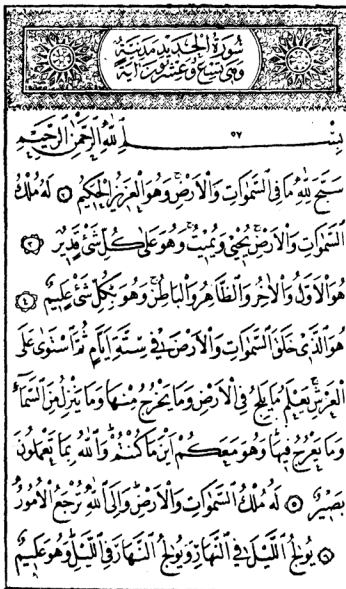 سُورَةُ الْحَدِيدِ مَدَنِيَّةٌ
وَهِيَ تِسْعٌ وَعِشْرُونَ آيَةً
٥٧
بِسْمِ اللّٰهِ الرَّحْمٰنِ الرَّحِيمِ
سَبَّحَ لِلّٰهِ مَا فِي السَّمٰوَاتِ وَالْاَرْضِ وَهُوَ الْعَزِيزُ الْحَكِيمُ ٢ لَهُ مُلْكُ
السَّمٰوَاتِ وَالْاَرْضِ يُحْيِي وَيُمِيتُ وَهُوَ عَلٰى كُلِّ شَيْءٍ قَدِيرٌ ٣
هُوَ الْاَوَّلُ وَالْاٰخِرُ وَالظَّاهِرُ وَالْبَاطِنُ وَهُوَ بِكُلِّ شَيْءٍ عَلِيمٌ ٤
هُوَ الَّذِي خَلَقَ السَّمٰوَاتِ وَالْاَرْضَ فِي سِتَّةِ اَيَّامٍ ثُمَّ اسْتَوٰى عَلَى
الْعَرْشِ يَعْلَمُ مَا يَلِجُ فِي الْاَرْضِ وَمَا يَخْرُجُ مِنْهَا وَمَا يَنْزِلُ مِنَ السَّمَاءِ
وَمَا يَعْرُجُ فِيهَا وَهُوَ مَعَكُمْ اَيْنَ مَا كُنْتُمْ وَاللّٰهُ بِمَا تَعْمَلُونَ
بَصِيرٌ ٥ لَهُ مُلْكُ السَّمٰوَاتِ وَالْاَرْضِ وَاِلَى اللّٰهِ تُرْجَعُ الْاُمُورُ
٦ يُولِجُ الَّيْلَ فِي النَّهَارِ وَيُولِجُ النَّهَارَ فِي الَّيْلِ وَهُوَ عَلِيمٌ